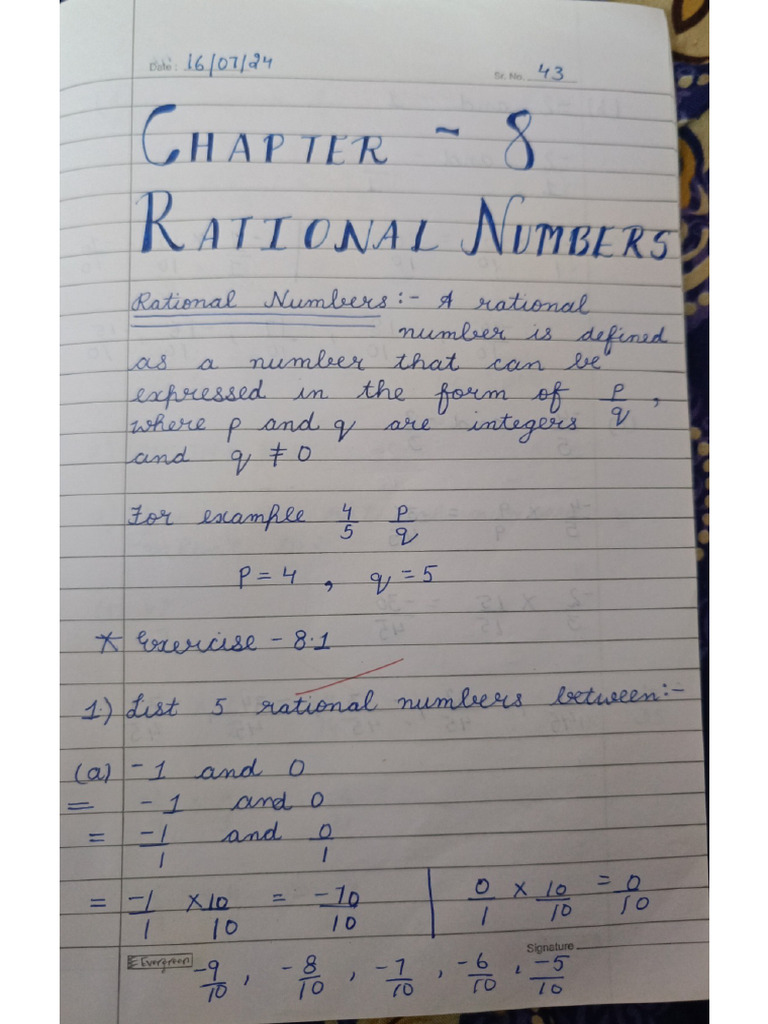 Date: 16/07/24
Sr. No. 43
CHAPTER - 8
RATIONAL NUMBERS
Rational Numbers:- A rational
number is defined
as a number that can be
expressed in the form of p/q,
where p and q are integers
and q ≠ 0
For example 4/5 p/q
P = 4 , q = 5
* Exercise - 8.1
1.) List 5 rational numbers between:-
(a) -1 and 0
= -1 and 0
= -1/1 and 0/1
= -1/1 × 10/10 = -10/10 | 0/1 × 10/10 = 0/10
Evergreen
Signature
-9/10, -8/10, -7/10, -6/10, -5/10